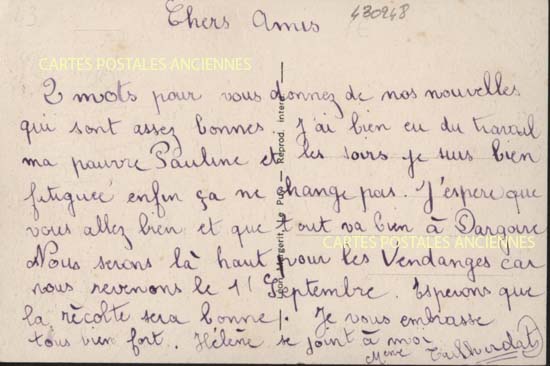 430248
Chers Amis
CARTES POSTALES ANCIENNES
2 mots pour vous donnez de nos nouvelles
qui sont assez bonnes. J'ai bien eu du travail
ma pauvre Pauline et les soirs je suis bien
fatiguée enfin ça ne change pas. J'espère que
vous allez bien et que tout va bien à Dargoire
CARTES POSTALES ANCIENNES
Nous serons là haut pour les Vendanges car
nous revenons le 11 Septembre. Esperons que
la récolte sera bonne. Je vous embrasse
tous bien fort. Hélène se joint à moi
Margerit, Le Puy — Reprod. interd.